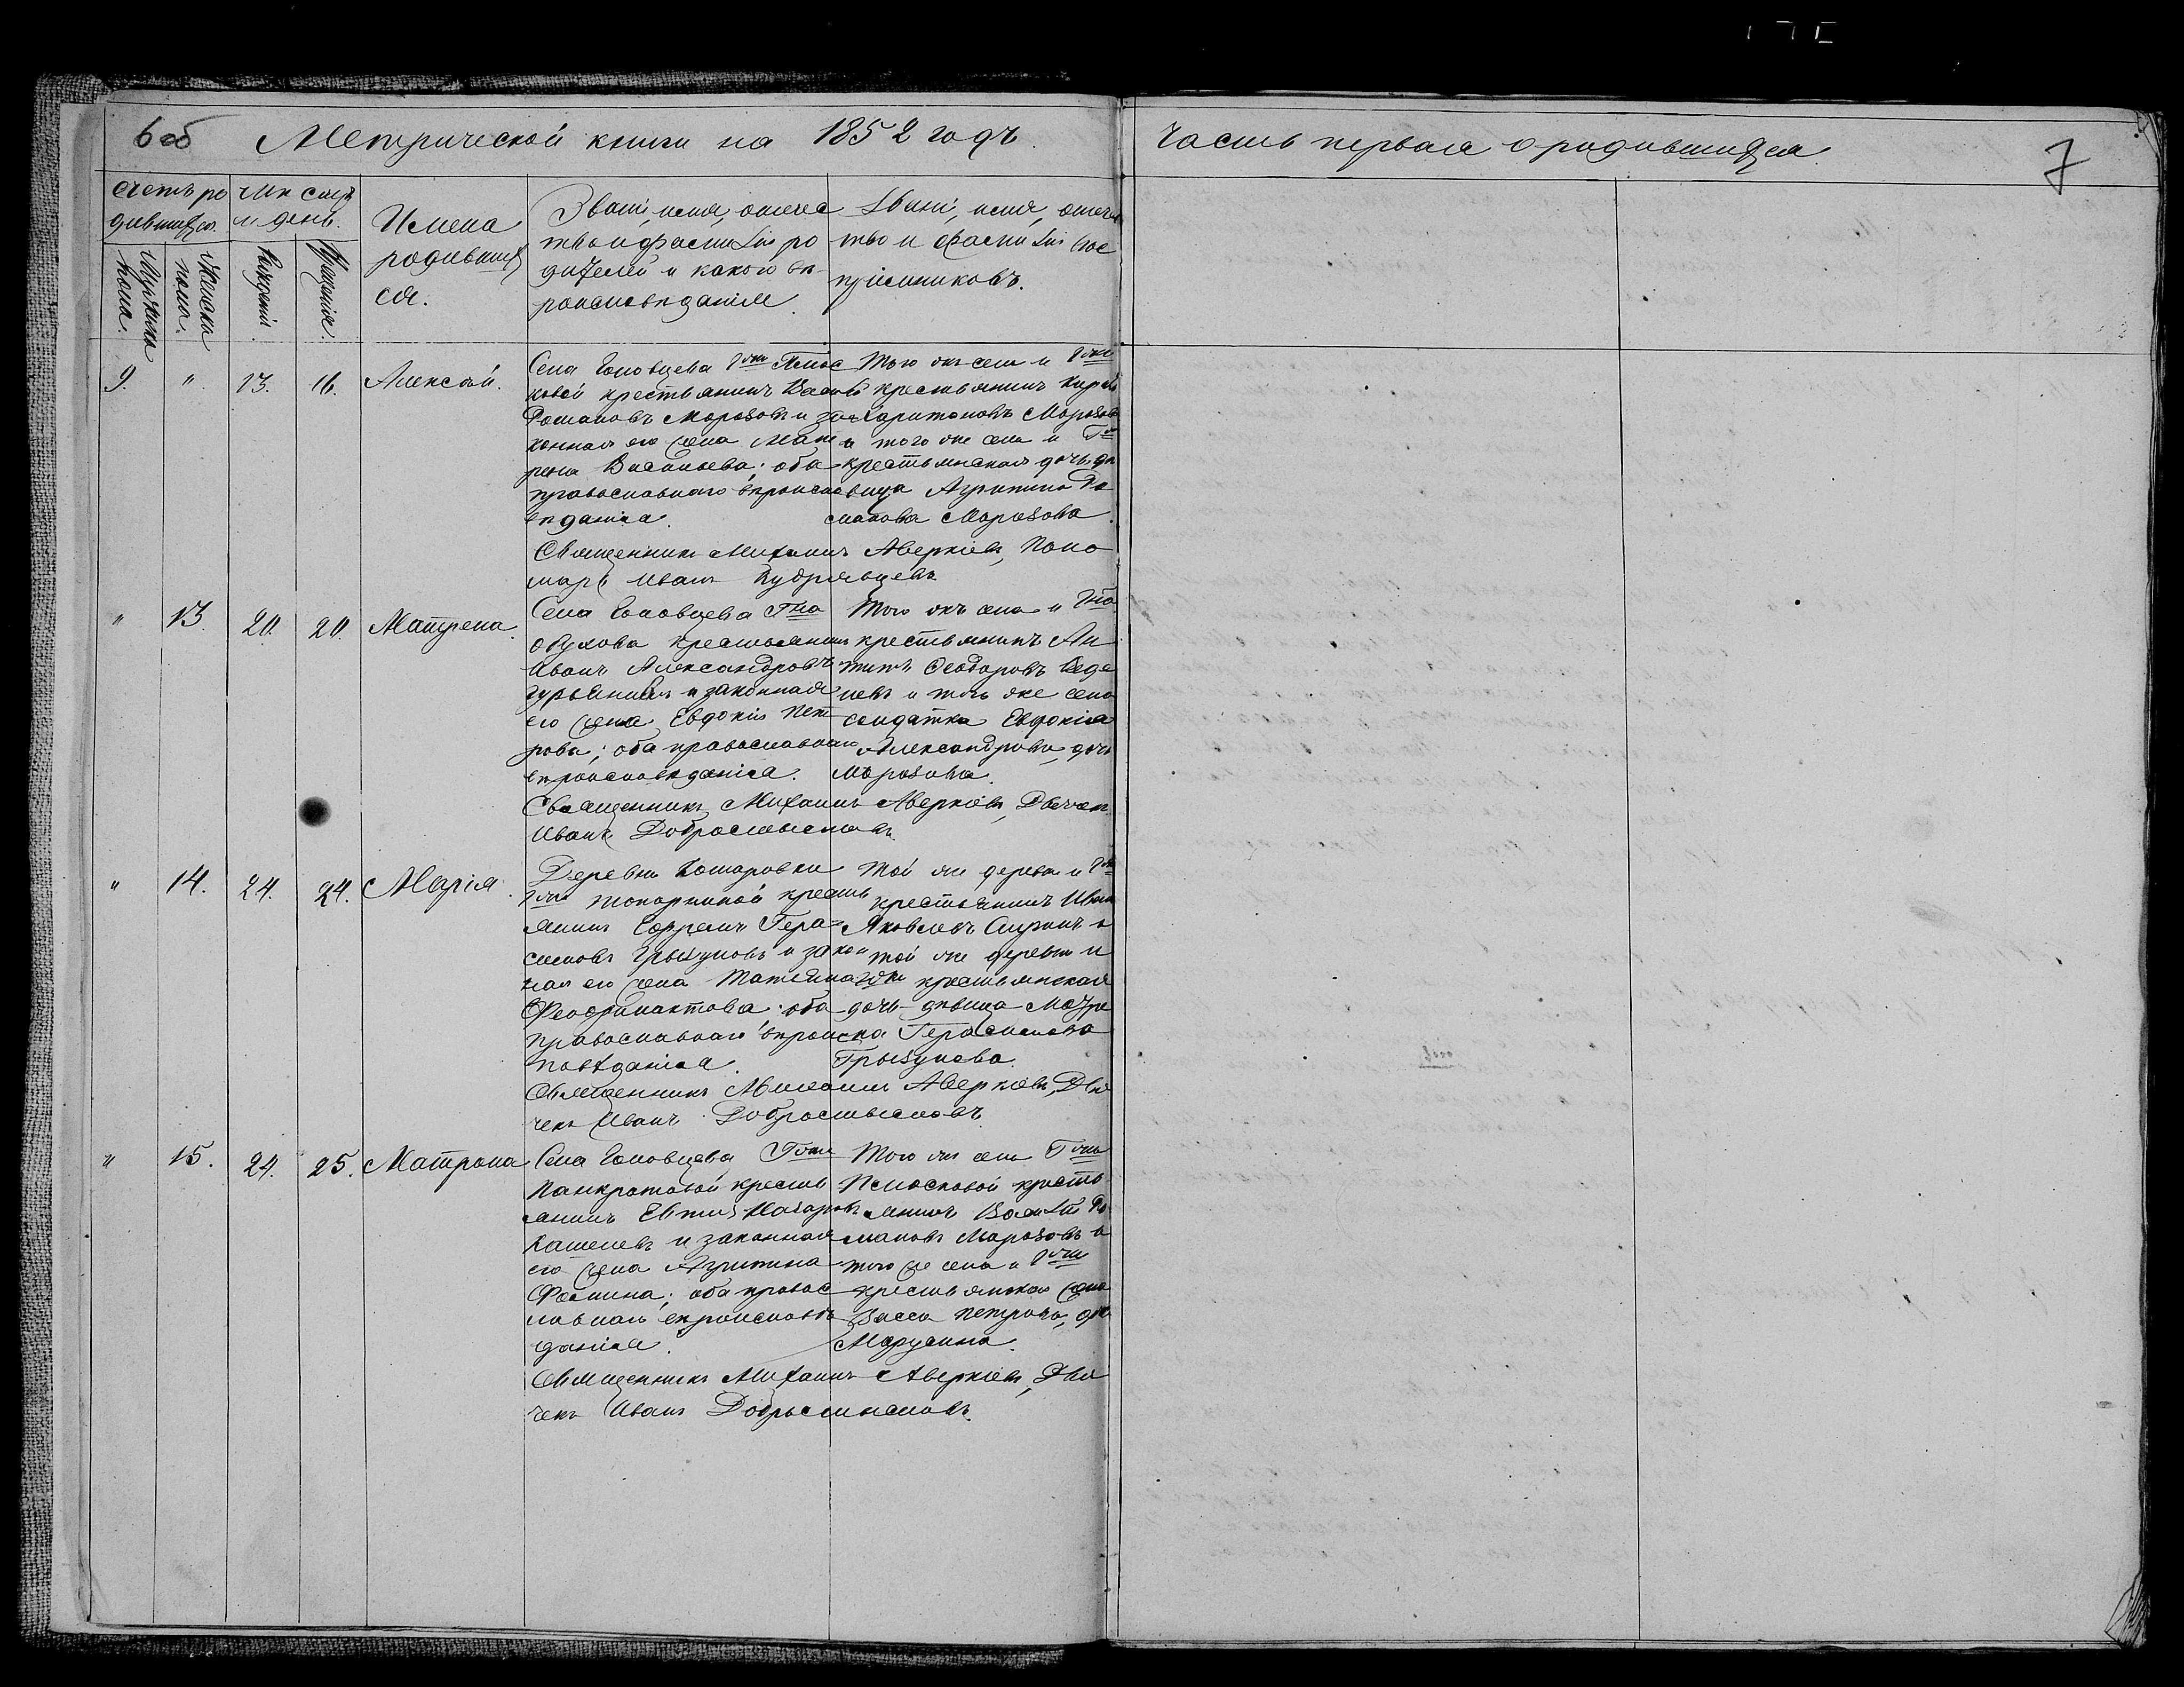 6 об Метрической книги на 1852 годъ.
часть первая о родившихся.
7
Счетъ ро
дившихся.
Мужеска
пола.
Женска
пола.
и день.
Рожденія
Крещенія.
Имена
родивших
ся.
Званіе, имя, отечес
тво и фамилія ро
дителей и какого вѣ
роисповѣданія.
Званіе, имя, отечес
тво и фамилія вос
пріемниковъ.
9. " 13. 16. Алексѣй.
Села Головцева Гжи Плос
ковой крестьянинъ Василій
Романовъ Морозовъ и за
конная его жена Мат
рена Васильева; оба
православнаго вѣроиспо
вѣданія.
Того же села и Гжи
крестьянинъ
Харитоновъ Морозовъ
и того же села и Гжи
крестьянская дочь дѣ
вица Агрипина Ро
манова Морозова.
Священникъ Михаилъ Аверкіевъ, Поно
марь Иванъ Кудрявцевъ.
" 13. 20. 20. Матрена.
Села Головцева Гна
Обухова крестьянинъ
Иванъ Александровъ
и законная
его жена Евдокія Пет
рова; оба православнаго
вѣроисповѣданія.
Того жъ села и Гна
крестьянинъ Ан
типъ Ѳеодоровъ
и того же села
солдатка Евдокія
Александрова, дочь
Морозова.
Священникъ Михаилъ Аверкіевъ, Дьячекъ
Иванъ Добросмысловъ.
" 14. 24. 24. Марія.
Деревни Комаровки
Гжи Токаревой кресть
янинъ Ефремъ Гера
симовъ Грызуновъ и закон
ная его жена Татьяна
Феофилактова; оба
православнаго вѣроис
повѣданія.
Той же деревни и Гжи
крестьянинъ Иванъ
Яковлевъ и
той же деревни и
Гжи крестьянская
дочь дѣвица Мавра
Герасимова
Грызунова.
Священникъ Михаилъ Аверкіевъ, Дья
чекъ Иванъ Добросмысловъ.
" 15. 24. 25. Матрона
Села Головцева Гжи
Панкратовой кресть
янинъ Евтихій Назаровъ
и законная
его жена Агрипина
Фомина; оба правос
лавнаго вѣроисповѣ
данія.
Того же села Гжи
Плосковой кресть
янинъ Василій Ро
мановъ Морозовъ и
того же села и Гжи
крестьянская жена
Васса Петрова,
Марусина.
Священникъ Михаилъ Аверкіевъ, Дья
чекъ Иванъ Добросмысловъ.